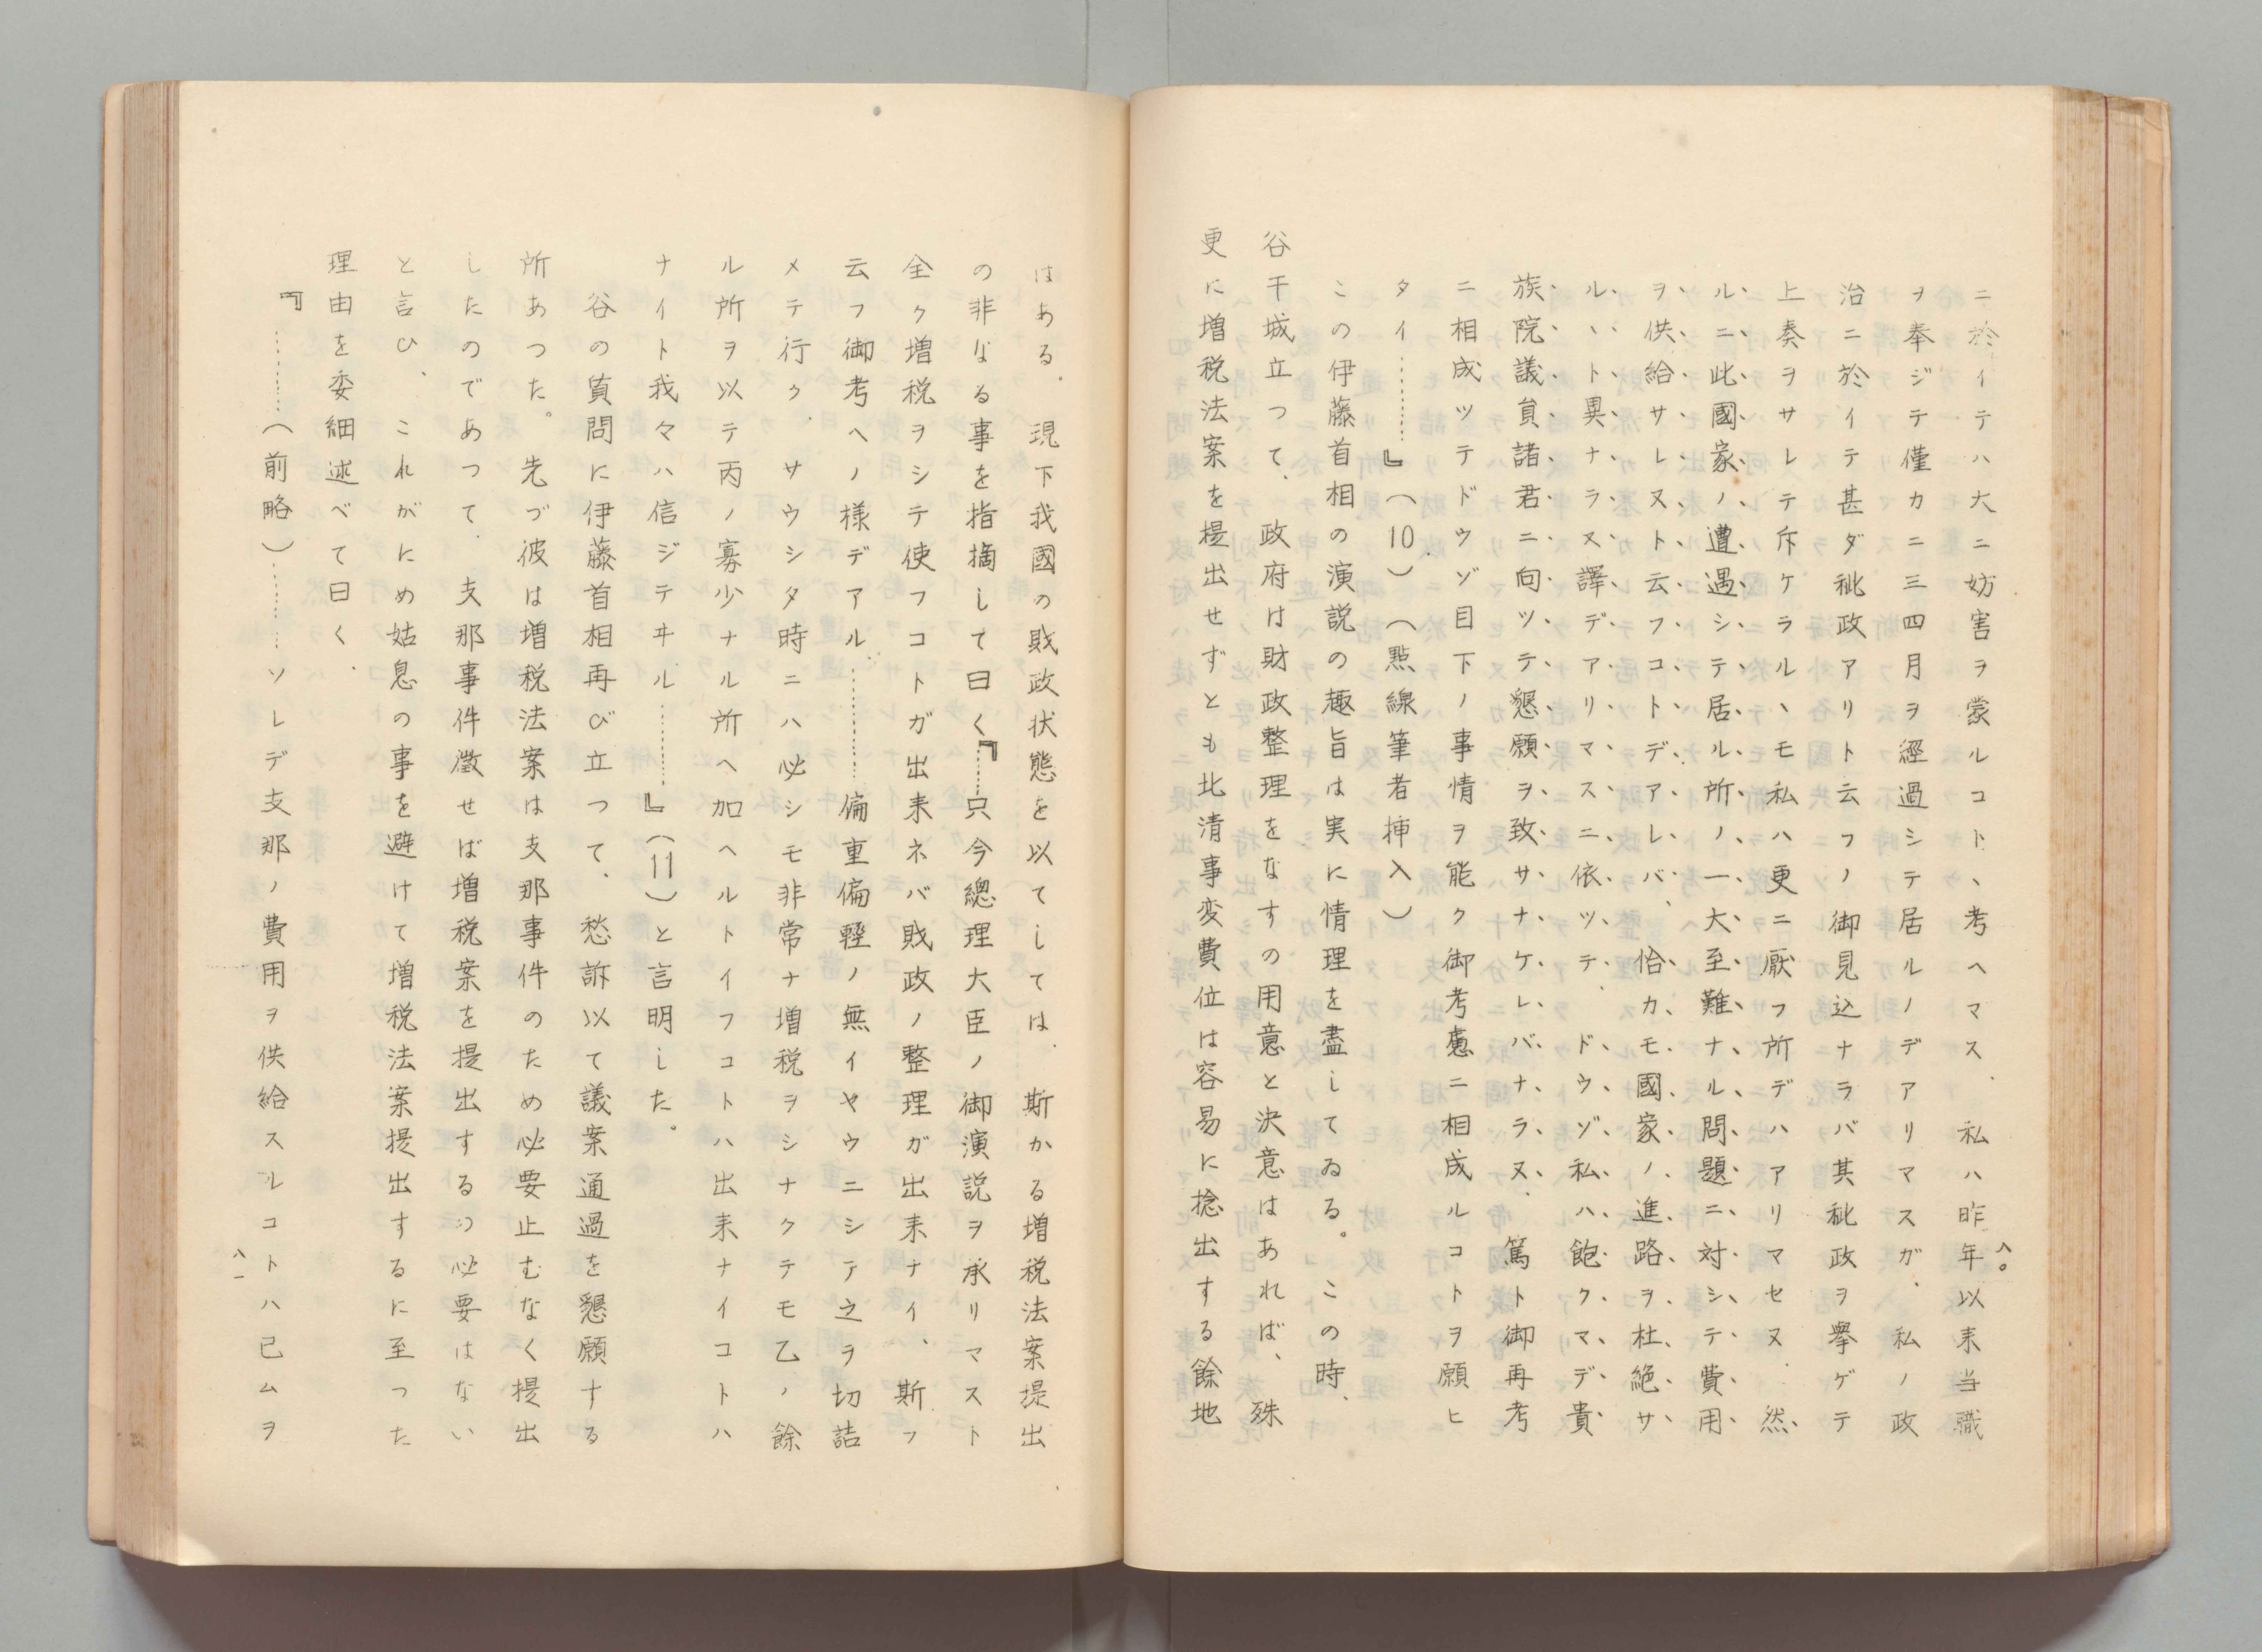 ニ於イテハ大ニ妨害ヲ蒙ルコト、考ヘマス、私ハ昨年以来当職
ヲ奉ジテ僅カニ三四月ヲ經過シテ居ルノデアリマスガ、私ノ政
治ニ於イテ甚ダ秕政アリト云フノ御見込ナラバ其秕政ヲ擧ゲテ
上奏ヲサレテ斥ケラル、モ私ハ更ニ厭フ所デハアリマセヌ、然
ルニ此國家ノ遭遇シテ居ル所ノ一大至難ナル問題ニ対シテ費用
ヲ供給サレヌト云フコトデアレバ、恰カモ國家ノ進路ヲ杜絶サ
ル、ト異ナラヌ譯デアリマスニ依ツテ、ドウゾ私ハ飽クマデ貴
族院議員諸君ニ向ツテ懇願ヲ致サナケレバナラヌ、篤ト御再考
ニ相成ツテドウゾ目下ノ事情ヲ能ク御考慮ニ相成ルコトヲ願ヒ
タイ………』（10）（點線筆者挿入）
この伊藤首相の演説の趣旨は実に情理を盡してゐる。この時、
谷干城立つて、政府は財政整理をなすの用意と決意はあれば、殊
更に増税法案を提出せずとも北清事変費位は容易に捻出する餘地
はある。現下我國の財政状態を以てしては、斯かる増税法案提出
の非なる事を指摘して曰く『……只今總理大臣ノ御演説ヲ承リマスト
全ク増税ヲシテ使フコトガ出来ネバ財政ノ整理ガ出来ナイ、斯フ
云フ御考ヘノ様デアル…………偏重偏輕ノ無イヤウニシテ之ヲ切詰
メテ行ク、サウシタ時ニハ必シモ非常ナ増税ヲシナクテモ乙ノ餘
ル所ヲ以テ丙ノ寡少ナル所ヘ加ヘルトイフコトハ出来ナイコトハ
ナイト我々ハ信ジテヰル………』（11）と言明した。
谷の質問に伊藤首相再び立つて、愁訴以て議案通過を懇願する
所あつた。先づ彼は増税法案は支那事件のため必要止むなく提出
したのであつて、支那事件徴せば増税案を提出するの必要はない
と言ひ、これがにめ姑息の事を避けて増税法案提出するに至つた
理由を委細述べて曰く、
『………（前略）………ソレデ支那ノ費用ヲ供給スルコトハ已ムヲ